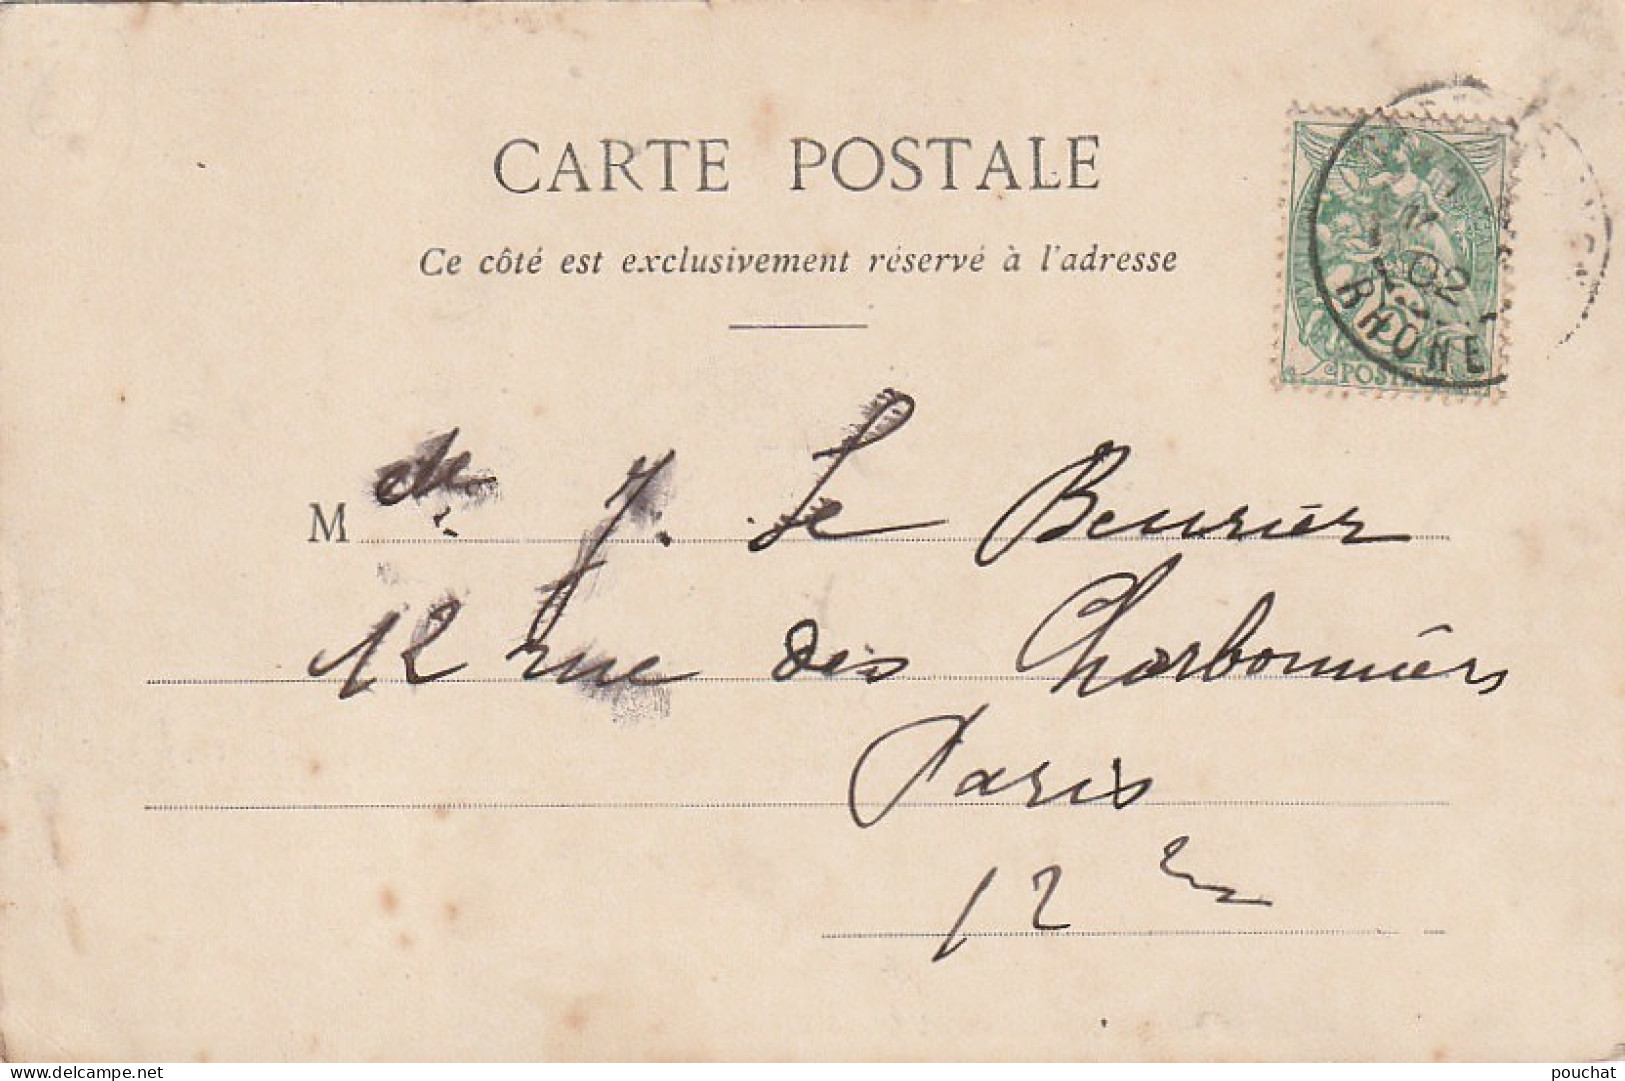 CARTE POSTALE
Ce côté est exclusivement réservé à l'adresse
02
RHONE
POSTES
Mde J. Le Beurier
12 rue des Charbonniers
Paris
12me
www.delcampe.net
pouchat